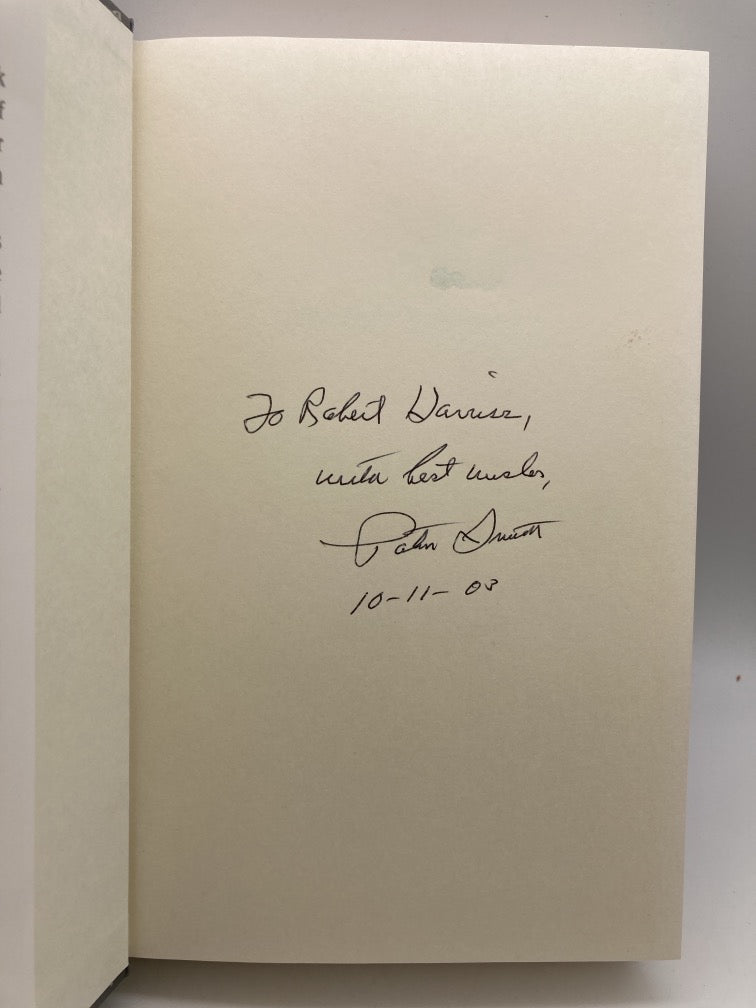 To Robert Harrison,
with best wishes,
Smith
10-11-03